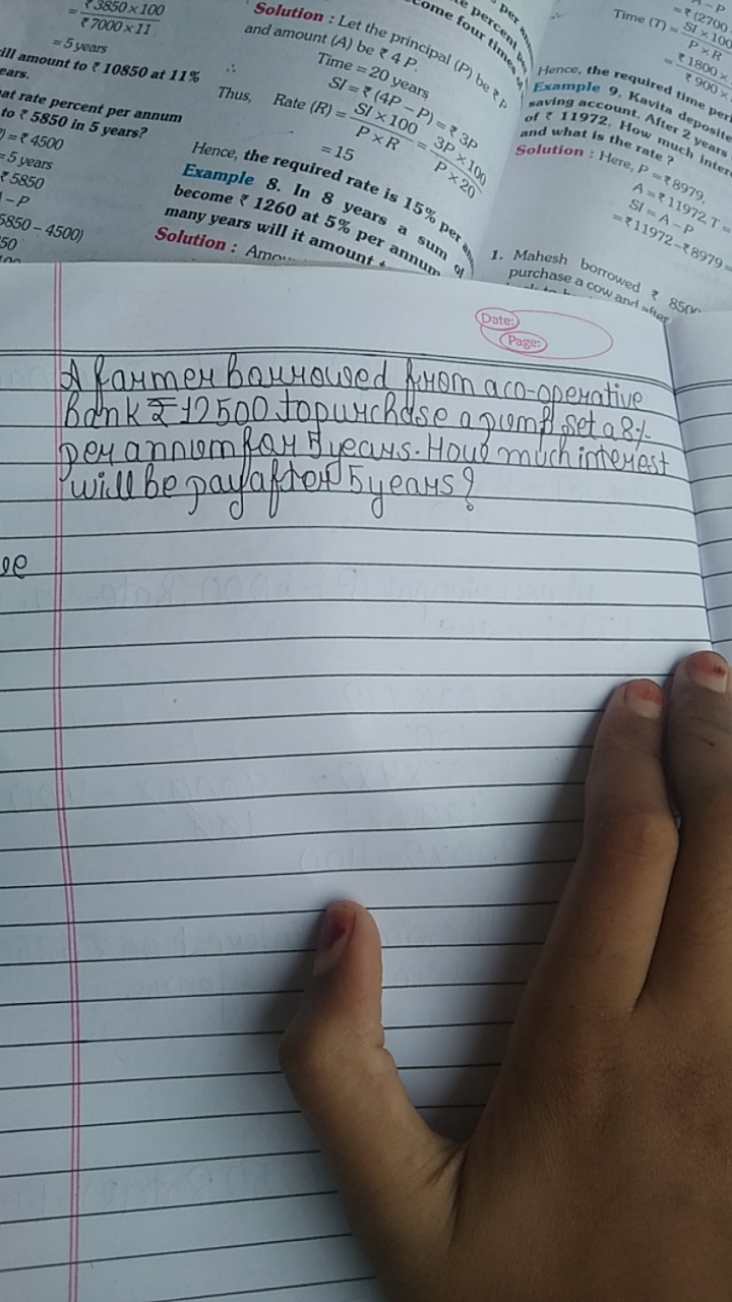 = ₹3850×100
₹7000×11
= 5 years
ill amount to ₹ 10850 at 11%
ears.
at rate percent per annum
to ₹ 5850 in 5 years?
) = ₹ 4500
= 5 years
₹ 5850
– P
5850 – 4500)
50
Solution : Let the principal (P) be ₹ P
and amount (A) be ₹ 4 P.
∴ Time = 20 years
SI = ₹ (4P – P) = ₹ 3P
Thus, Rate (R) = SI×100 / P×R = 3P×100 / P×20
= 15
Hence, the required rate is 15% per
Example 8. In 8 years a sum of
become ₹ 1260 at 5% per annum
many years will it amount
Solution :
come four times
= ₹ (2700
Time (T) = SI×100 / P×R
= ₹1800× / ₹900×
Hence, the required time
Example 9. Kavita
saving account. After 2 years
of ₹ 11972. How much
and what is the rate ?
Solution : Here, P = ₹8979,
A = ₹11972, T =
SI = A – P
= ₹11972 – ₹8979 =
1. Mahesh borrowed ₹
purchase a cow and after
Date:
Page:
A farmer borrowed from a co-operative
bank ₹ 12500 to purchase a pump set a 8%
per annum for 5 years. How much interest
will be pay after 5 years?